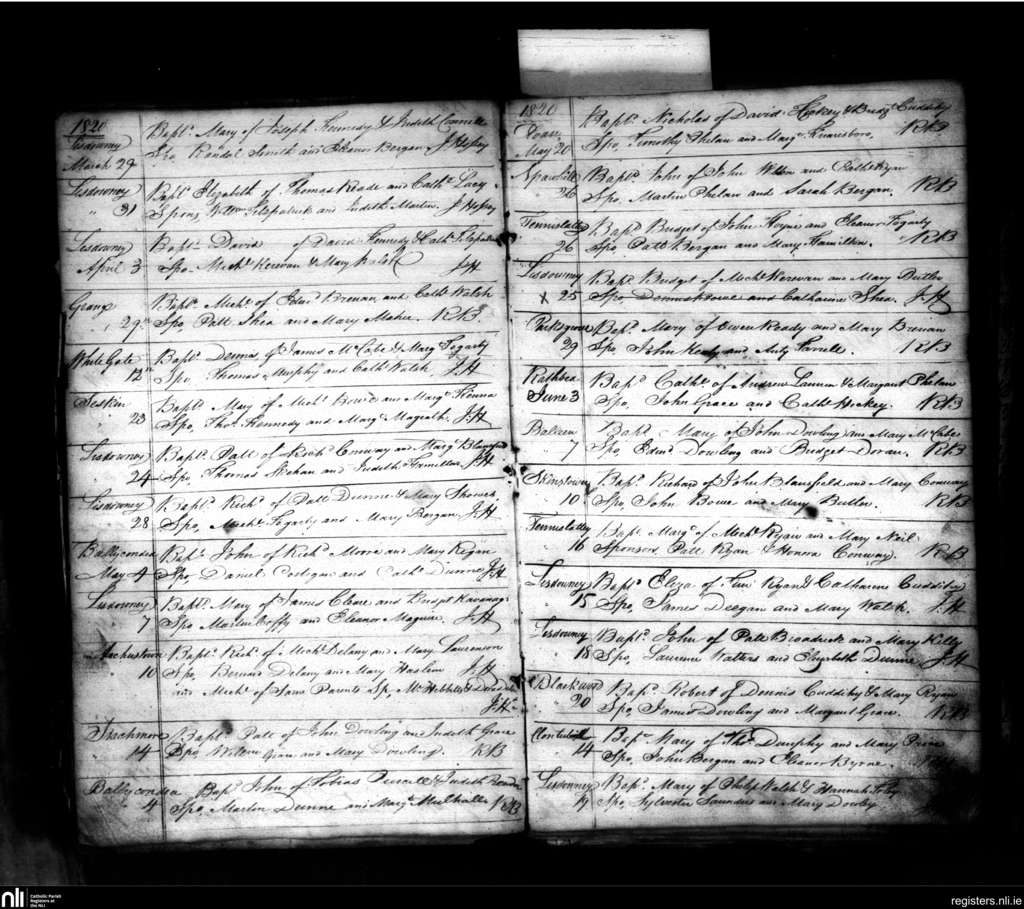 1820
Lisdowney Bapt. Mary of Joseph Kennedy & Judith
March 29 Spo, Smith and Eleanor Bergan J Hefsey
Lisdowney Bapt. Elizabeth of Thomas Reade and Cathe. Lacy
" 31 Spons, Willm Fitzpatrick and Judith Martin. J Hefsey
Lisdowney Bapt. David of David Kennedy & Cath. Fitzpatrick
April 3 Spo. Michl. Kerevan & Mary Walsh JH
Grange Bapt. Michl. of Edwd. Brenan, and Cathe. Walsh
" 29 Spo Patt Shea and Mary Maher. RB.
White Gate Bapt. Dennis, of James McCabe & Marg. Fogarty
12 Spo, Thomas Murphy and Cathe. Walsh JH
Seskin Bapt. Mary of Michl. Bowe and Marg. Kenna
23 Spo, Thos. Kennedy and Marg. Magrath. JH
Lisdowney Bapt. Patt of Richd. Conway and Marg. Blanchfield
24 Spo, Thomas Mohan and Judith JH
Lisdowney Bapt. Richd. of Patt Dunne & Mary
28 Spo, Michl. Fogarty and Mary Bergan. JH
Ballyconra John of Richd. Moore and Mary Regan
May 4 Spo, Daniel Costigan and Cathe. Dunne JH
Lisdowney Bapt. Mary of James Cleare and Bridget Kavanagh
7 Spo Martin and Eleanor Maguire. JH
Bapt. Richd. of Michl. Delany and Mary Laurenson
10 Spo, Bernard Delany and Mary JH
and Michl. of Same Parents Sp,
JH
Bapt. Patt of John Dowling and Judith Grace
14 Spo Willm Grace and Mary Dowling. RB
Ballyconra Bapt. John of Tobias & Judith
4 Spo, Martin Dunne and Marg. Mulhall. RB
1820 Bapt. Nicholas of David Hickey & Bridgt. Cuddihy
May 20 Spo, Timothy Phelan and Marg. RB
Bapt. John of John and Cathe. Ryan
26 Spo, Martin Phelan and Sarah Bergan. RB
Tennislatty Bapt. Bridget of John Hoyne and Eleanor Fogarty
26 Spo, Patt Bergan and Mary Hamilton. RB
Lisdowney Bapt. Bridget of Michl. Kerevan and Mary Butler
x 25 Spo, Dennis Bowe and Catharine Shea. JH
Parksgrove Bapt. Mary of Owen Ready and Mary Brenan
29 Spo, John Healy and Farrell. RB
Rathbea Bapt. Cathe. of Andrew & Margaret Phelan
June 3 Spo, John Grace and Cathe. Hickey. RB
Bapt. Mary of John Dowling and Mary McCabe
7 Spo, Edmd. Dowling and Bridget Doran. RB
Bapt. Richard of John Blanchfield and Mary Conway
10 Spo, John Bowe and Mary Butler. RB
Tennislatty Bapt. Marg. of Michl. Ryan and Mary Neil
16 Sponsors, Patt Ryan & Honora Conway. RB
Lisdowney Bapt. Eliza. of Ryan & Catharine Cuddihy
15 Spo, James Deegan and Mary Walsh. JH
Lisdowney Bapt. John of Patt Broderick and Mary Kelly
18 Spo, Laurence Walters and Elizabeth Dunne JH
Blackwood Bapt. Robert of Dennis Cuddihy & Mary Ryan
20 Spo, James Dowling and Margaret Grace. RB
Bapt. Mary of Thos. Dunphy and Mary
14 Spo, John Bergan and Eleanor Byrne.
Lisdowney Bapt. Mary of Philip Walsh & Hannah Foley
19 Spo, Sylvester Saunders and Mary Dowley.
nli Catholic Parish
Registers at
the NLI
registers.nli.ie